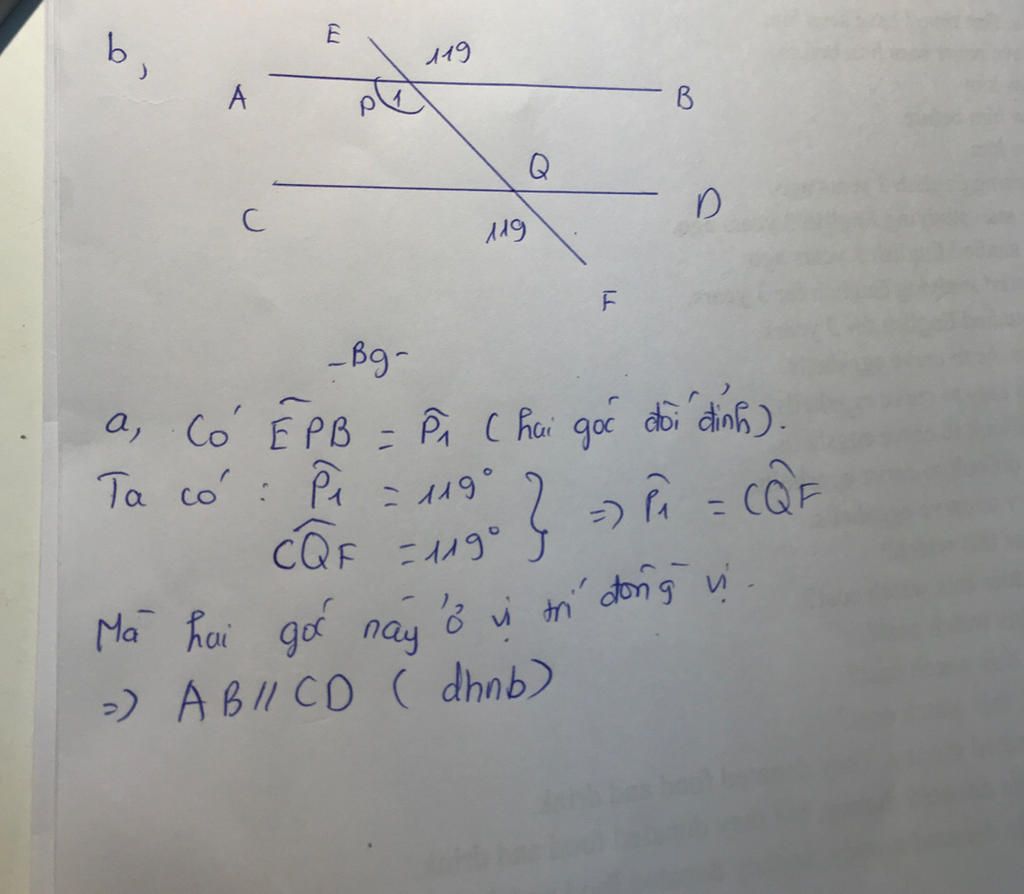 b,
E 119
A P 1 B
Q
C D
119
F
-Bg-
a, Có EPB = P1 (hai góc đối đỉnh).
Ta có: P1 = 119° } => P1 = CQF
CQF = 119°
Mà hai góc này ở vị trí đồng vị.
=> AB // CD (dhnb)